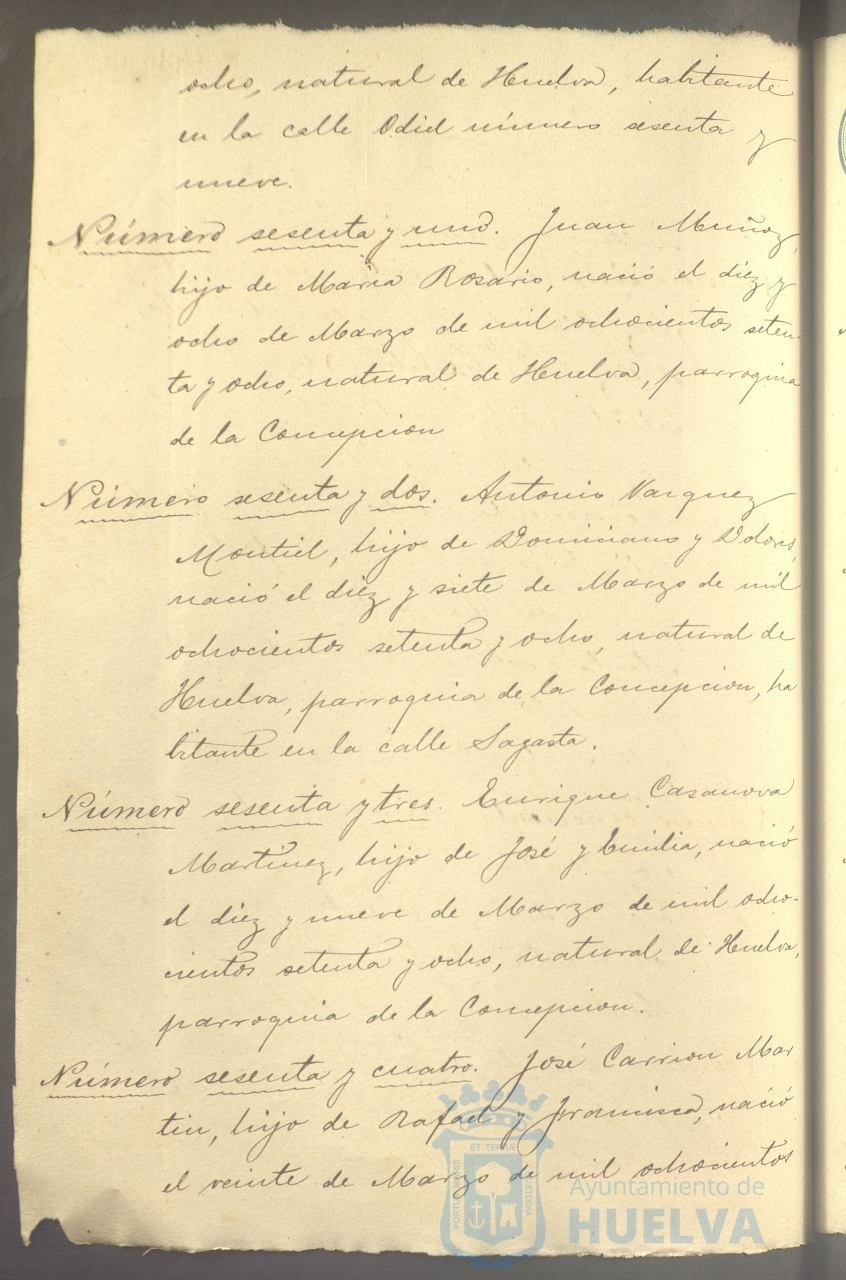 ocho, natural de Huelva, habitante
en la calle Odiel número sesenta y
nueve.
Número sesenta y uno. Juan Muñoz,
hijo de María Rosario, nació el diez y
ocho de Marzo de mil ochocientos seten-
ta y ocho, natural de Huelva, parroquia
de la Concepcion
Número sesenta y dos. Antonio Vazquez
Montiel, hijo de Domiciano y Dolores,
nació el diez y siete de Marzo de mil
ochocientos setenta y ocho, natural de
Huelva, parroquia de la Concepcion, ha
bitante en la calle Sagasta.
Número sesenta y tres. Enrique Casanova
Martínez, hijo de José y Emilia, nació
el diez y nueve de Marzo de mil ocho-
cientos setenta y ocho, natural de Huelva,
parroquia de la Concepcion.
Número sesenta y cuatro. José Carrion Mar
tin, hijo de Rafael y Francisca, nació
el veinte de Marzo de mil ochocientos
Ayuntamiento de
HUELVA